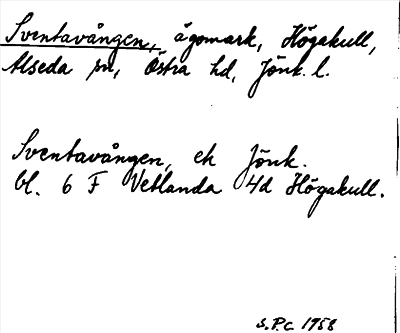 Sventavången, ägomark, Högakull,
Alseda sn, Östra hd, Jönk. l.
Sventavången, ek Jönk.
bl. 6 F Vetlanda 4d Högakull.
S.P.C 1958